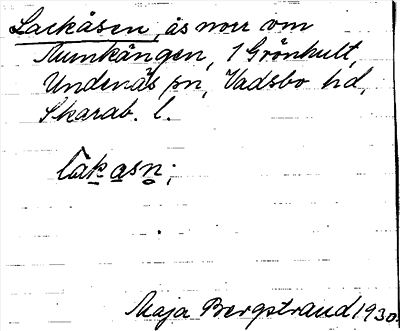 Lackåsen, ås norr om
Mumkången, 1 Grönhult,
Undenäs sn, Vadsbo hd,
Skarab. l.
Maja Bergstrand 1930.